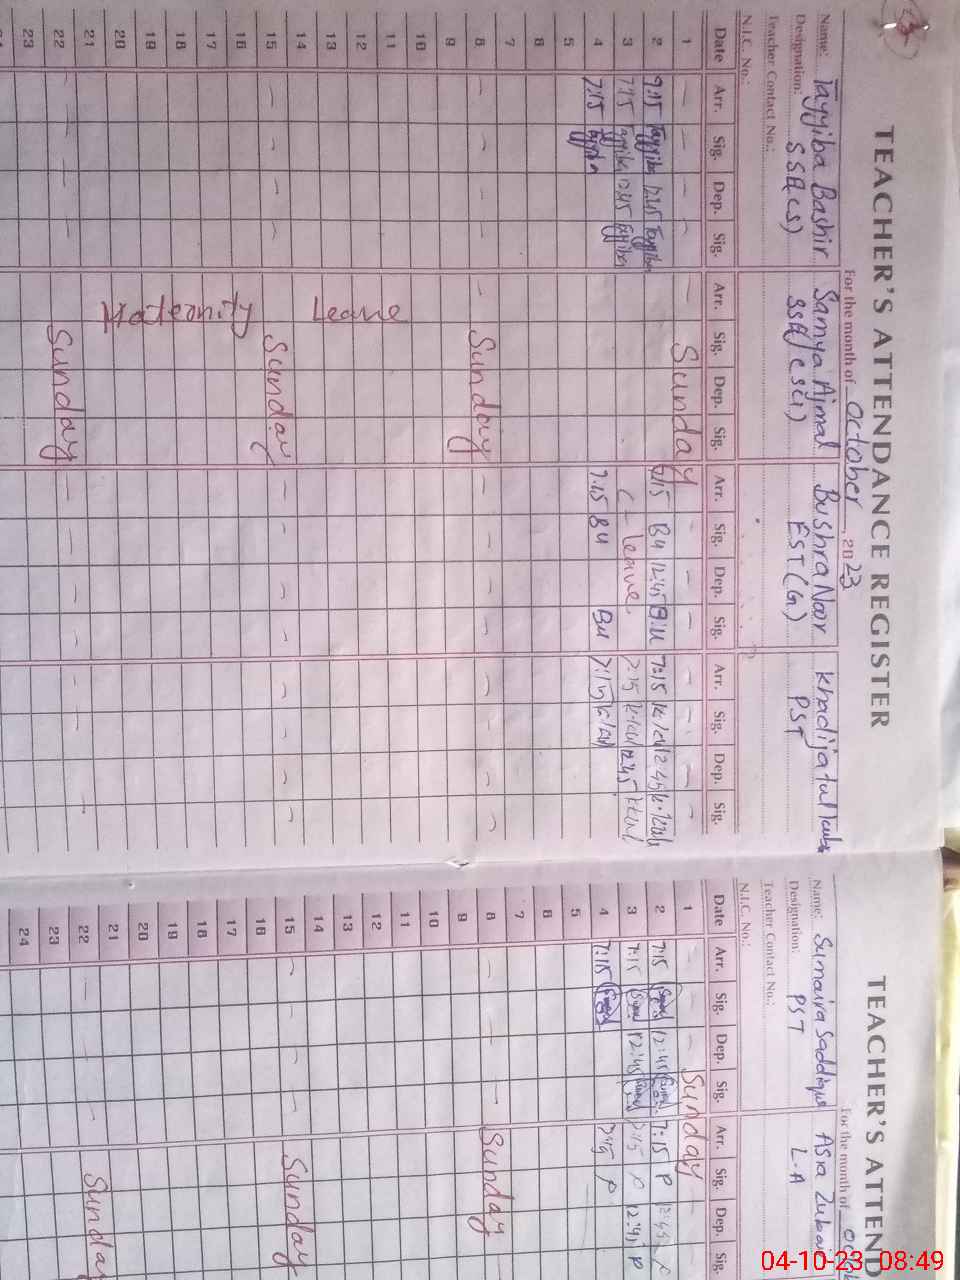 TEACHER'S ATTENDANCE REGISTER
For the month of October, 2023
Name: Tayyiba Bashir Samya Ajmal Bushra Noor Khadija tul
Designation: SSE(CS) EST(G) PST
Teacher Contact No.:
N.I.C. No.:
Date Arr. Sig. Dep. Sig. Arr. Sig. Dep. Sig. Arr. Sig. Dep. Sig. Arr. Sig. Dep. Sig.
1 Sunday
2 7:15 Tayyiba 12:45 Tayyiba 7:15 BU 12:45 B:U 7:15 12:45
3 7:15 Tayyiba 12:45 Tayyiba C- leave 7:15 12:45
4 7:15 Tayyiba 7:15 BU BU 7:15
5
6
7
8 Sunday
9
10
11
12
13
14
15 Sunday
16
17
18
19
20
21
22 Sunday
23
Maternity Leave
TEACHER'S ATTEND
For the month of Octo
Name: Sumaira Saddique Asia
Designation: PST L-A
Teacher Contact No.:
N.I.C. No.:
Date Arr. Sig. Dep. Sig. Arr. Sig. Dep. Sig.
1 Sunday
2 7:15 12:45 7:15 P 12:45
3 7:15 12:45 7:15 P 12:45 P
4 7:15 7:15 P
5
6
7
8 Sunday
9
10
11
12
13
14
15 Sunday
16
17
18
19
20
21
22 Sunday
23
24
04-10-23 08:49